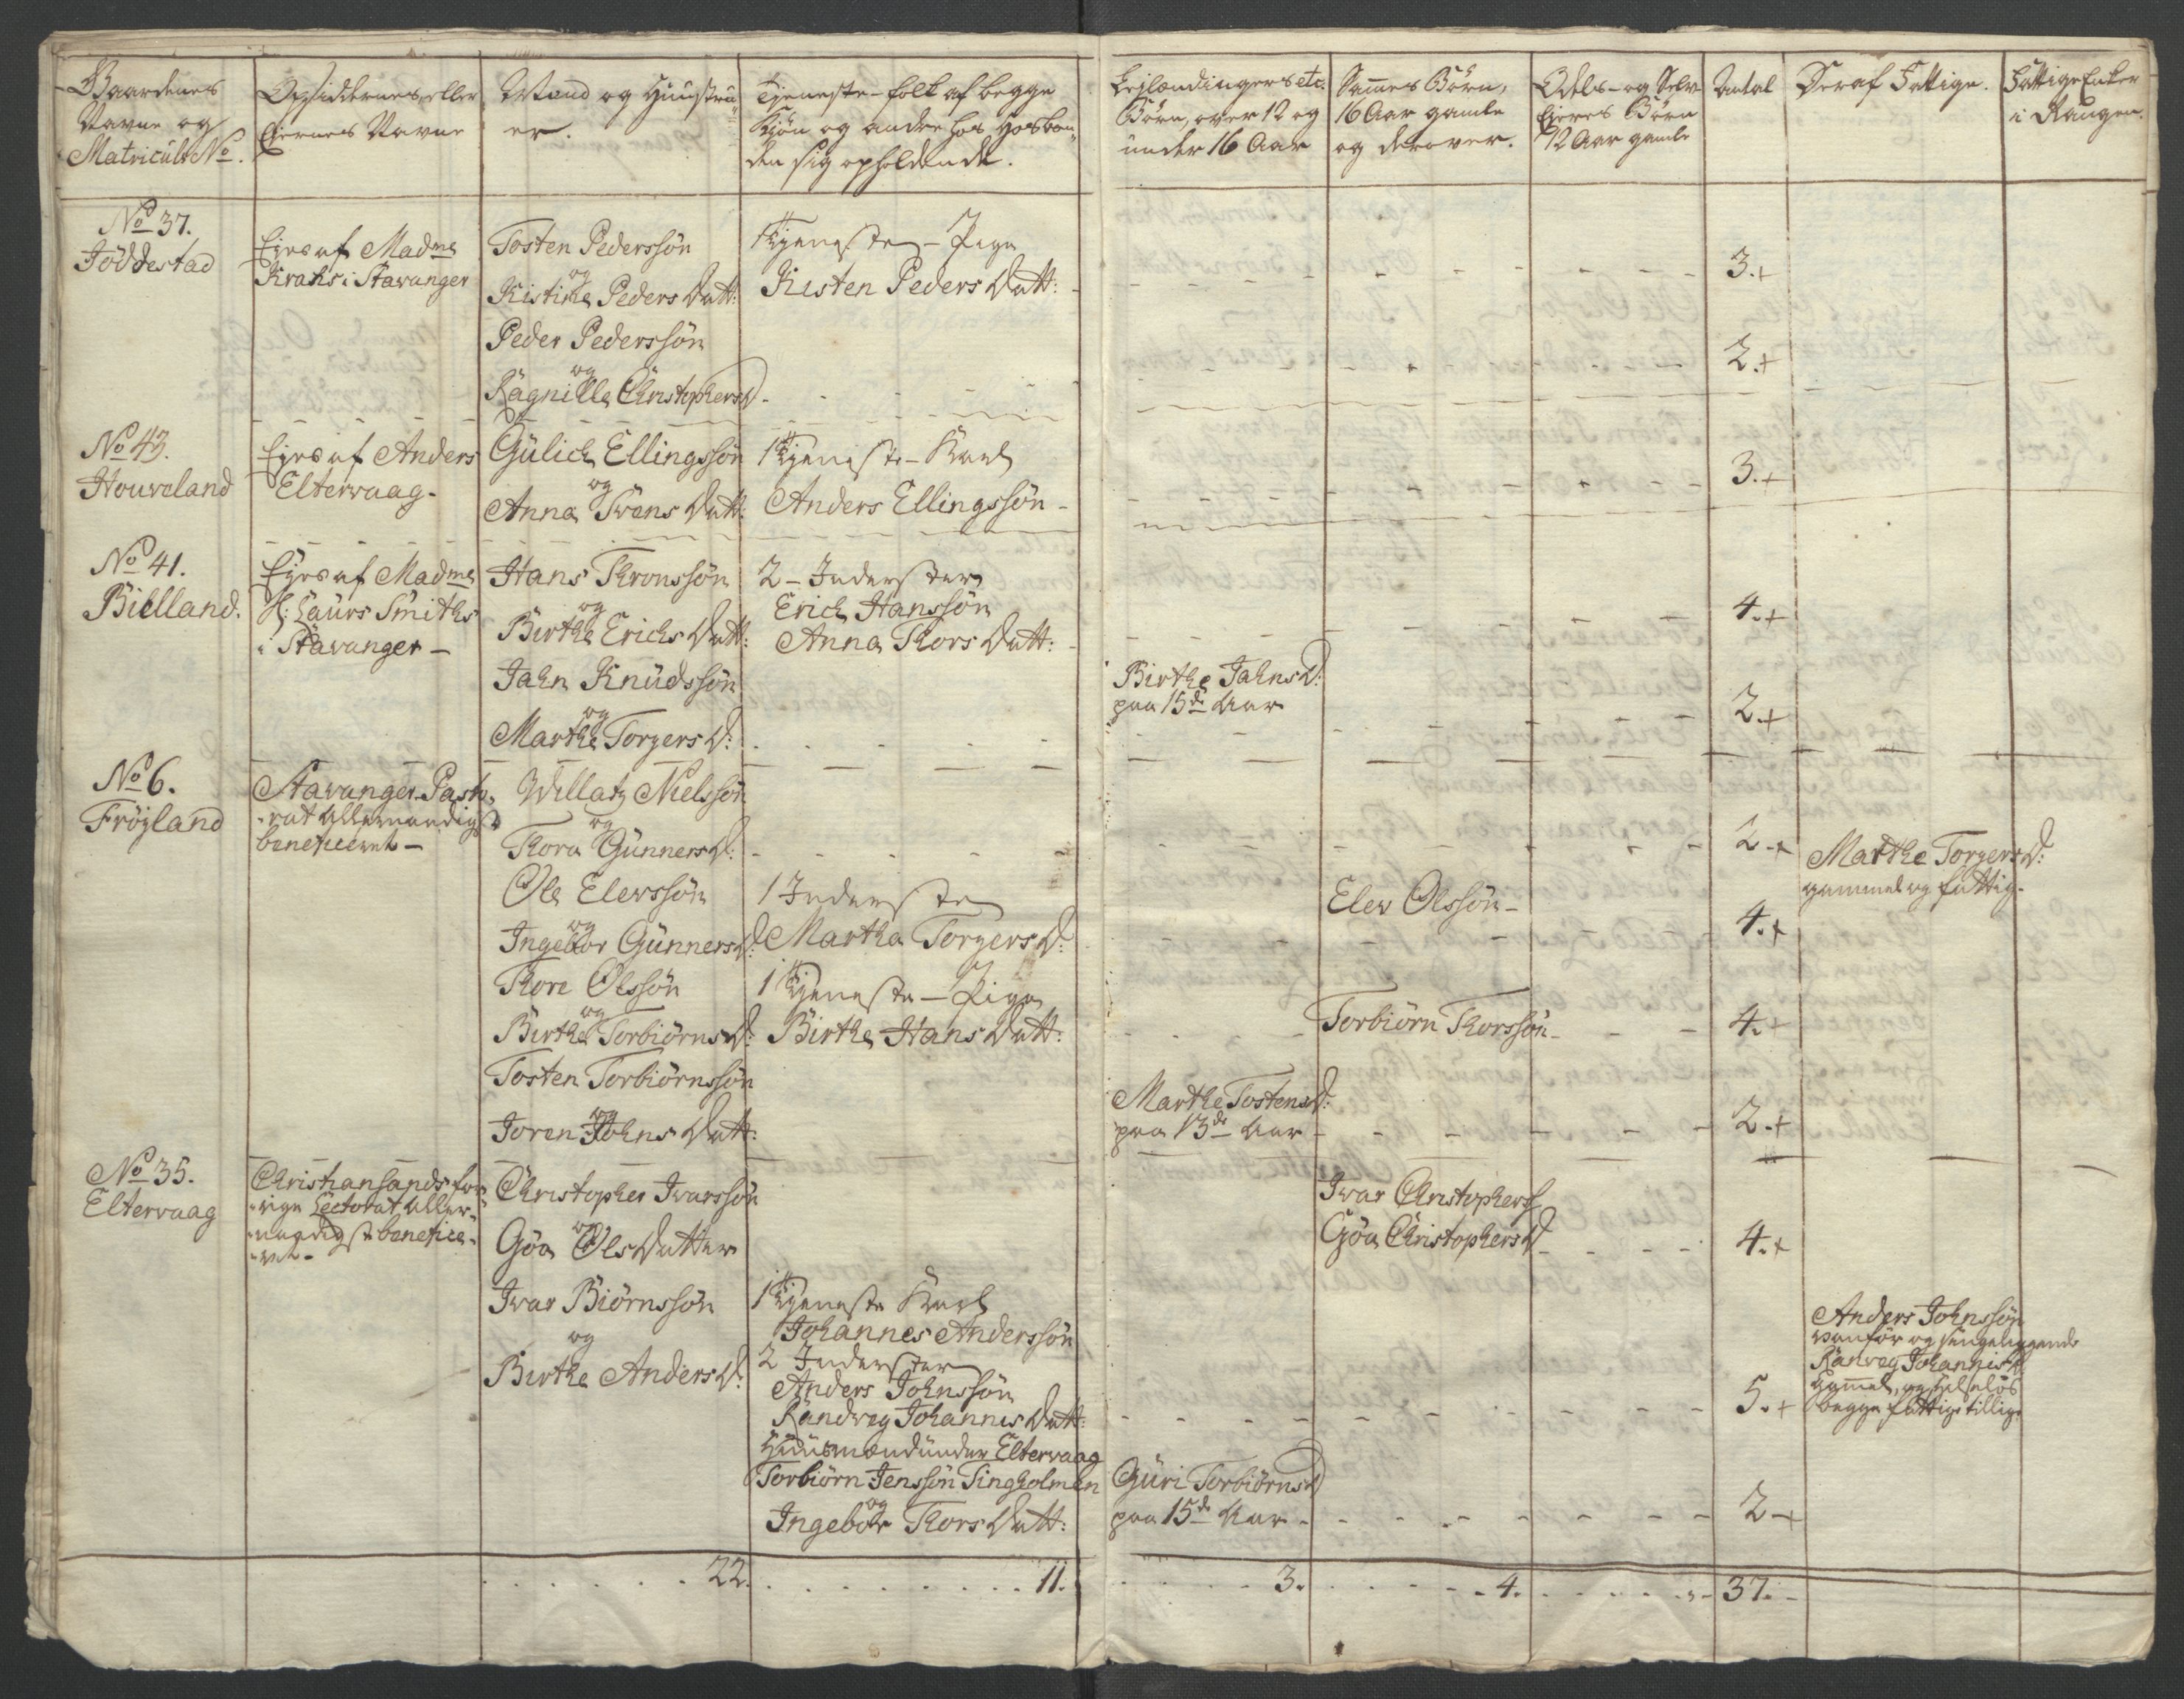 Gaardenes
Navne og
Matriculs No.
Opsiddernes eller
Eiernes Navne
Mænd og Huustru-
er.
Tjeneste-folk af begge
Kjøn og andre hos Hosbon-
den sig opholdende.
Leilændingers etc.
Børn, over 12 og
under 16 Aar
Sammes Børn,
16 Aar gamle
og derover.
Odels- og Selv
Eieres Børn
12 Aar gamle
Antal
Deraf Fattige.
Fattige Enker
i Ranger.
No 37.
Jöddestad
Ejes af Madme
Krahs i Stavanger
Tosten Pederssön
og
Kistine Peders Datt:
1 Tjeneste-Pige
Kisten Peders Datt:
3.+
Peder Pederssön
og
Ragnille Christophersd
2.+
No 43.
Houveland
Ejes af Anders
Eltervaag.
Gülich Ellingssön
og
Anna Svens Datt:
1 Tjeneste-Karl
Anders Ellingssön
3.+
No 41.
Bielland.
Ejes af Madme
Sl: Laurs Smiths
i Stavanger
Hans Thronssön
og
Birthe Erichs Datt:
2 - Inderster
Erich Hanssön
Anna Thors Datt:
4.+
Jahn Knüdssön
og
Marthe Torgers D:
Birthe Jahns D:
paa 15de Aar
2.+
No 6.
Fröyland
Stavanger Pasto-
-rat Allernaadigst
beneficeret
Willatz Nielssön
og
Thora Günners D:
2.+
Marthe Torgers D:
gammel og fattig.
Ole Elevssön
og
Ingebor Günners D:
1 Inderste
Martha Torgers D:
Elev Olssön
4.+
Thore Olssön
og
Birthe Torbiörns D:
1 Tjeneste-Pige
Birthe Hans Datt:
Torbiörn Thorssön
4.+
Tosten Torbiörnssön
og
Joren Johns Datt:
Marthe Tostens D:
paa 13de Aar
2.+
No 35.
Eltervaag
Christiansands for-
-rige Lectorat Aller-
-naadigst benefice-
-ret
Christopher Ivarssön
og
Göa Ols Datter
Ivar Christophers
Göa Christophers D
4.+
Ivar Biörnssön
og
Birthe Anders D:
1 Tjeneste Karl
Johannes Anderssön
2 Inderster
Anders Johnssön
Randveg Johannis Datt:
5.+
Anders Johnssön
vanför og sengeliggende
Ranveg Johannis D
Gammel, og helselös
begge fattige tillige
Huusmænd ünder Eltervaag
Torbiörn Jenssön Tingholmen
og
Ingebor Thors Datt:
Güri Torbiörns D
paa 15de Aar
2.+
22.
11.
3.
4.
37.